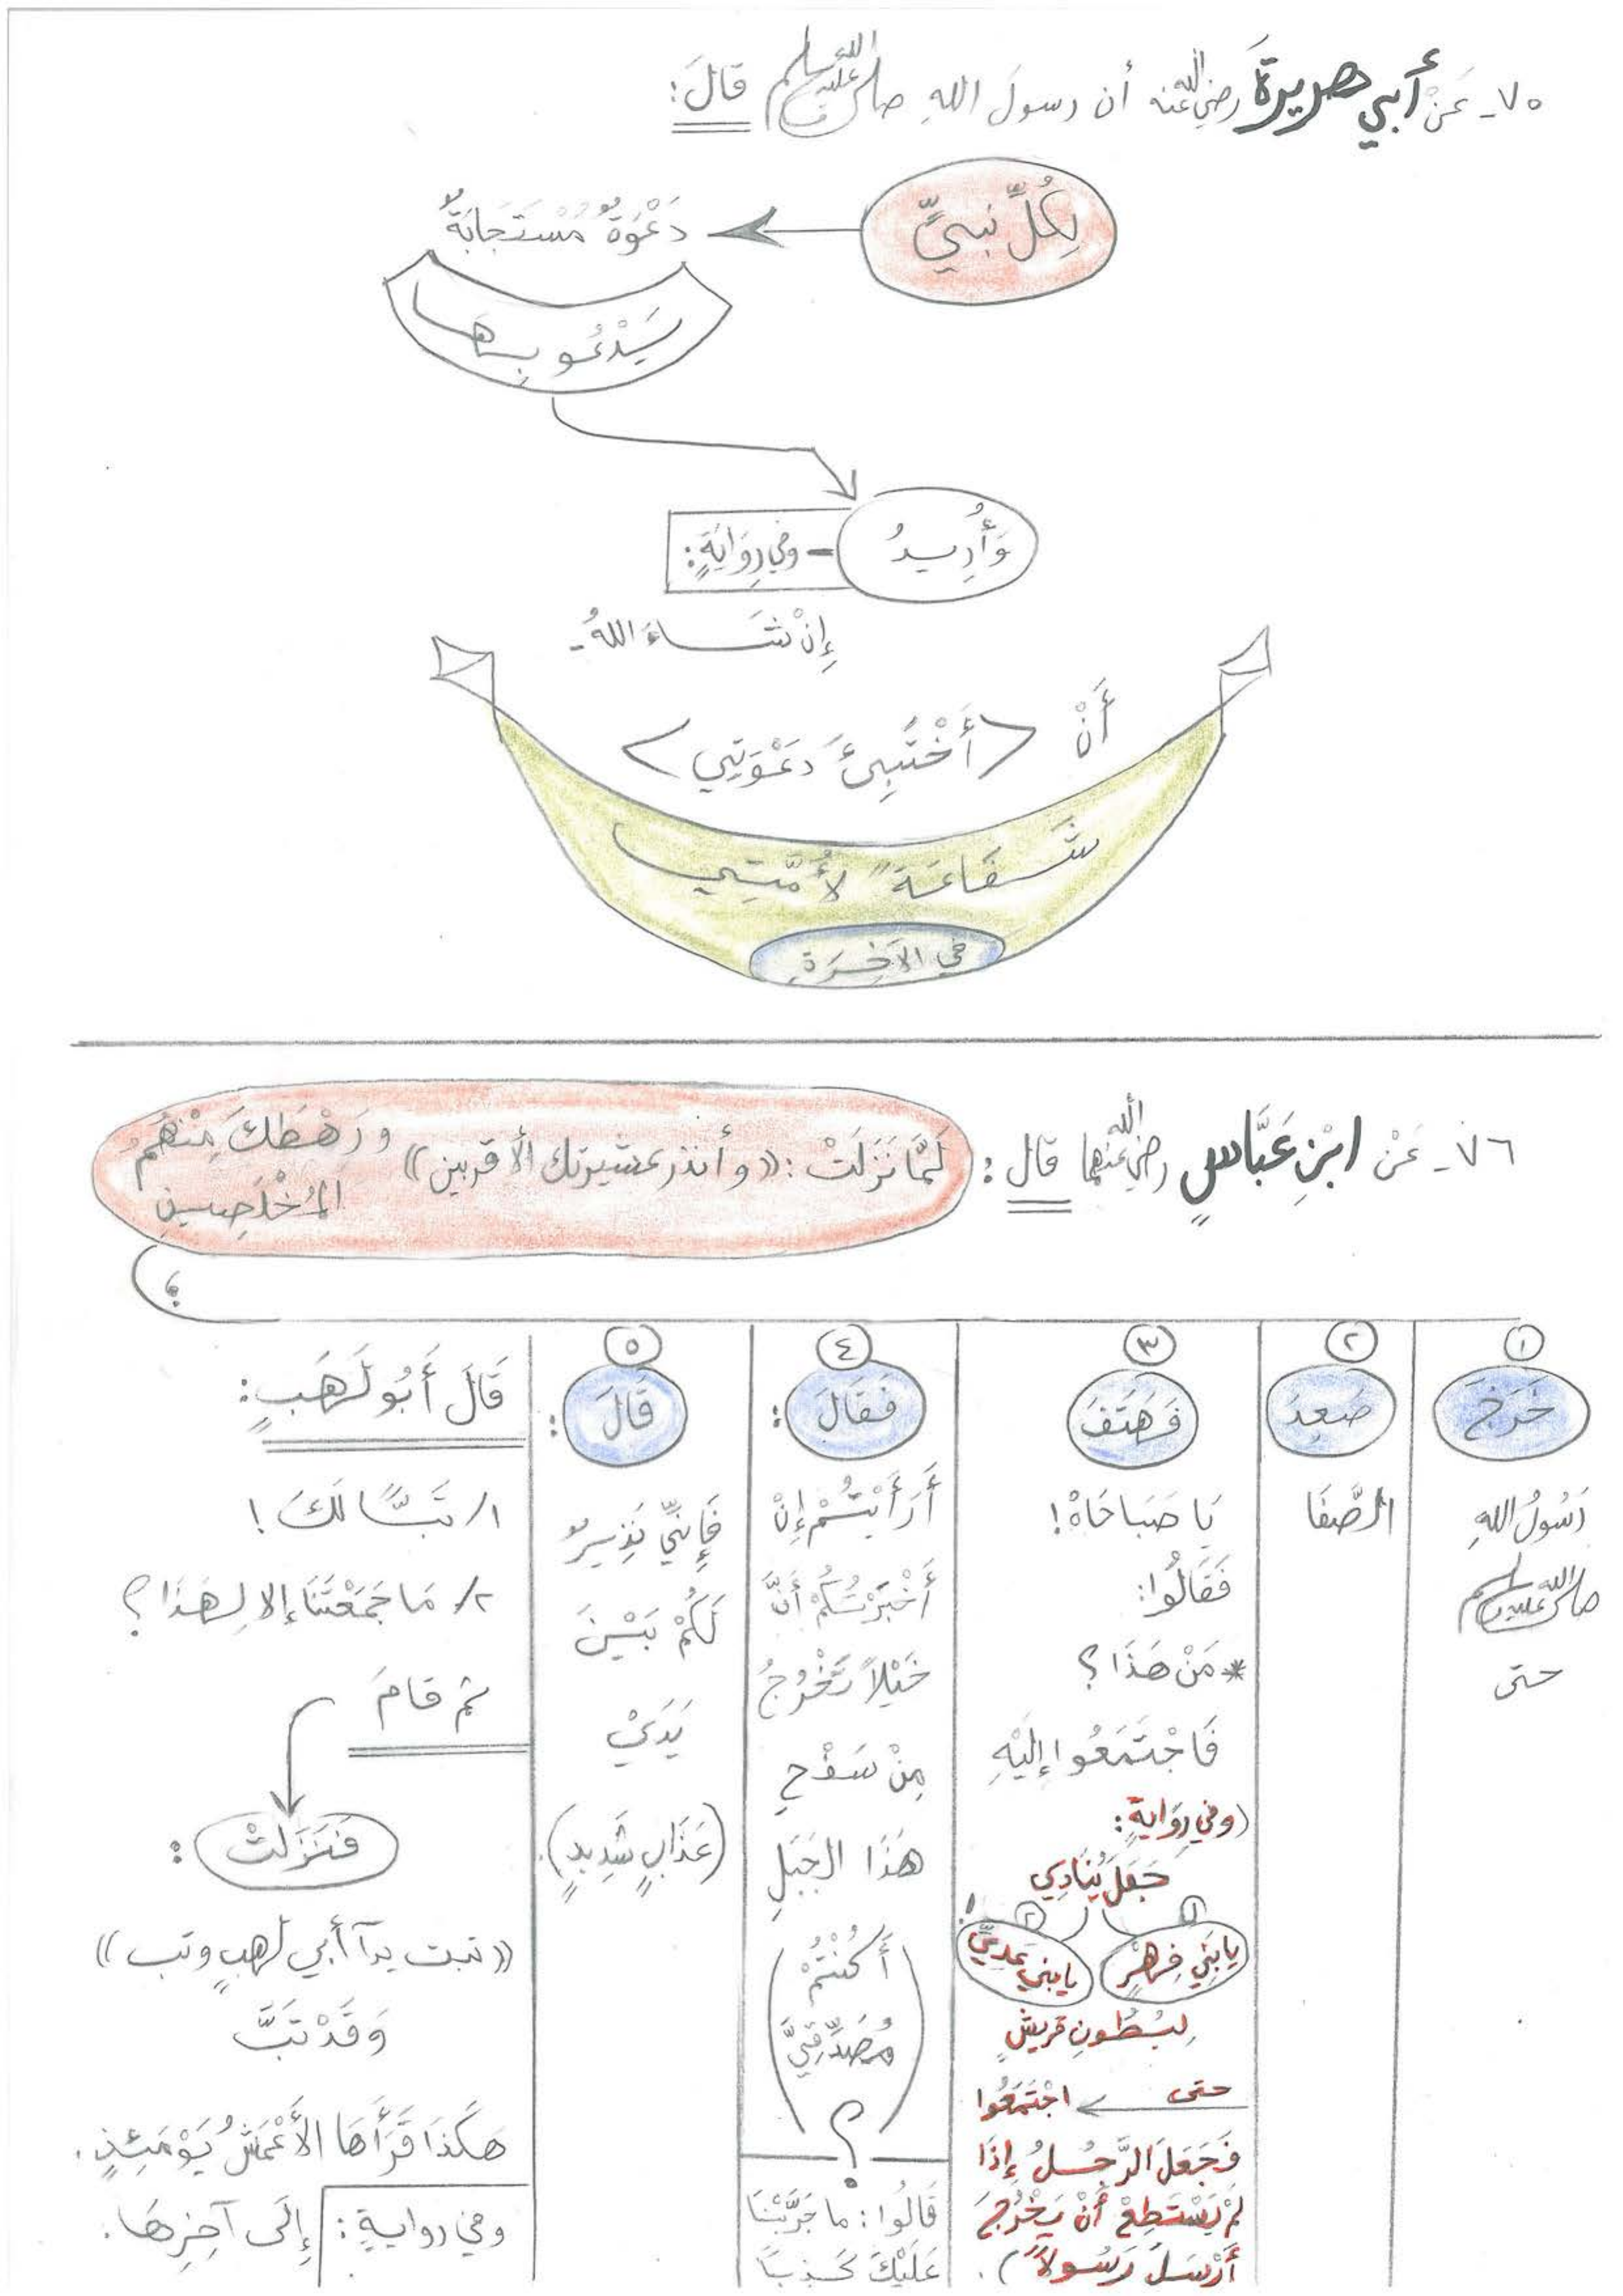 ٧٥- عَنْ أَبي هريرةَ رضي الله عنه أن رسولَ اللهِ صلى الله عليه وسلم قالَ:
لِكُلِّ نَبيٍّ
دَعْوَةٌ مُسْتَجَابَةٌ
يَدْعُو بِهَا
وَأُرِيدُ
- وفي رِوَايَةٍ:
إِنْ شَاءَ اللهُ -
أَنْ <أَخْتَبِئَ دَعْوَتِي>
شَفَاعَةً لأُمَّتِي
في الآخِرَةِ
٧٦- عَنْ ابْنِ عَبَّاسٍ رضي الله عنهما قال:
لَمَّا نَزَلَتْ: ((وأنذر عشيرتك الأقربين)) ورَهْطَكَ مِنْهُمُ
المُخْلَصِينِ
؛
١
خَرَجَ
رَسُولُ اللهِ
صلى الله عليه وسلم
حتى
٢
صَعِدَ
الصَّفَا
٣
فَهَتَفَ
يَا صَبَاحَاهْ!
فَقَالُوا:
* مَنْ هَذَا؟
فَاجْتَمَعُوا إِلَيْهِ
(وفي رِوَايةٍ:
جَعَلَ يُنَادِي
١ يا بَنِي فِهْرٍ
٢ يا بني عَدِيٍّ!
لِبُطُونِ قريشٍ
حتى اجْتَمَعُوا
فَجَعَلَ الرَّجُلُ إِذَا
لَمْ يَسْتَطِعْ أَنْ يَخْرُجَ
أَرْسَلَ رَسُولاً).
٤
فَقَالَ:
أَرَأَيْتُمْ إِنْ
أَخْبَرْتُكُمْ أَنَّ
خَيْلاً تَخْرُجُ
مِنْ سَفْحِ
هَذَا الجَبَلِ
(أَكُنْتُمْ
مُصَدِّقِيَّ)
؟
قَالُوا: ما جَرَّبْنَا
عَلَيْكَ كَذِبًا
٥
قَالَ:
فَإِنِّي نَذِيرٌ
لَكُمْ بَيْنَ
يَدَيْ
(عَذَابٍ شَدِيدٍ).
قَالَ أَبُو لَهَبٍ:
١/ تَبًّا لَكَ!
٢/ مَا جَمَعْتَنَا إلا لِهَذَا؟
ثم قامَ
فَنَزَلَتْ:
((تبت يدآ أبي لهبٍ وتب))
وَقَدْ تَبَّ
هَكَذَا قَرَأَهَا الأَعْمَشُ يَوْمَئِذٍ.
وفي روايةٍ: إِلَى آخِرِهَا.